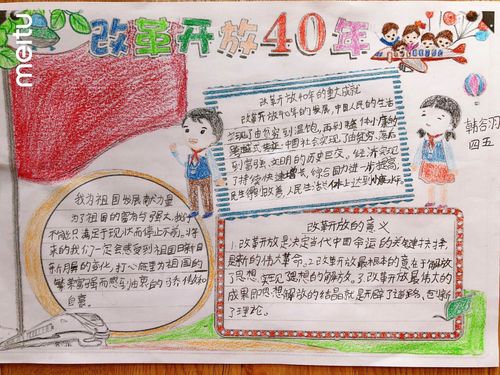 meitu
改革开放40年
韩谷羽
四五
改革开放40年的重大成就
改革开放40年的发展,中国人民的生活
实现了由贫穷到温饱,再到整体小康的
跨越式转变。中国社会实现了由贫穷、落后
到富强、文明的历史巨变。经济实现
了持续快速增长,综合国力进一步提高,
民生得到改善,人民生活总体上达到小康水平。
我为祖国发展献力量
为了祖国的富有与强大,我们
不能只满足于现状而停止不前。将
来的我们一定会感受到祖国日新月
异的变化,打心底里为祖国的
繁荣富强而感到由衷的
自豪。
改革开放的意义
1.改革开放是决定当代中国命运的关键抉择,
是新的伟大革命。2.改革开放最根本的意在于解放
了思想,实现了思想的解放。3.改革开放最伟大的
成果即思想解放的结晶就是开辟了道路,
了理论。